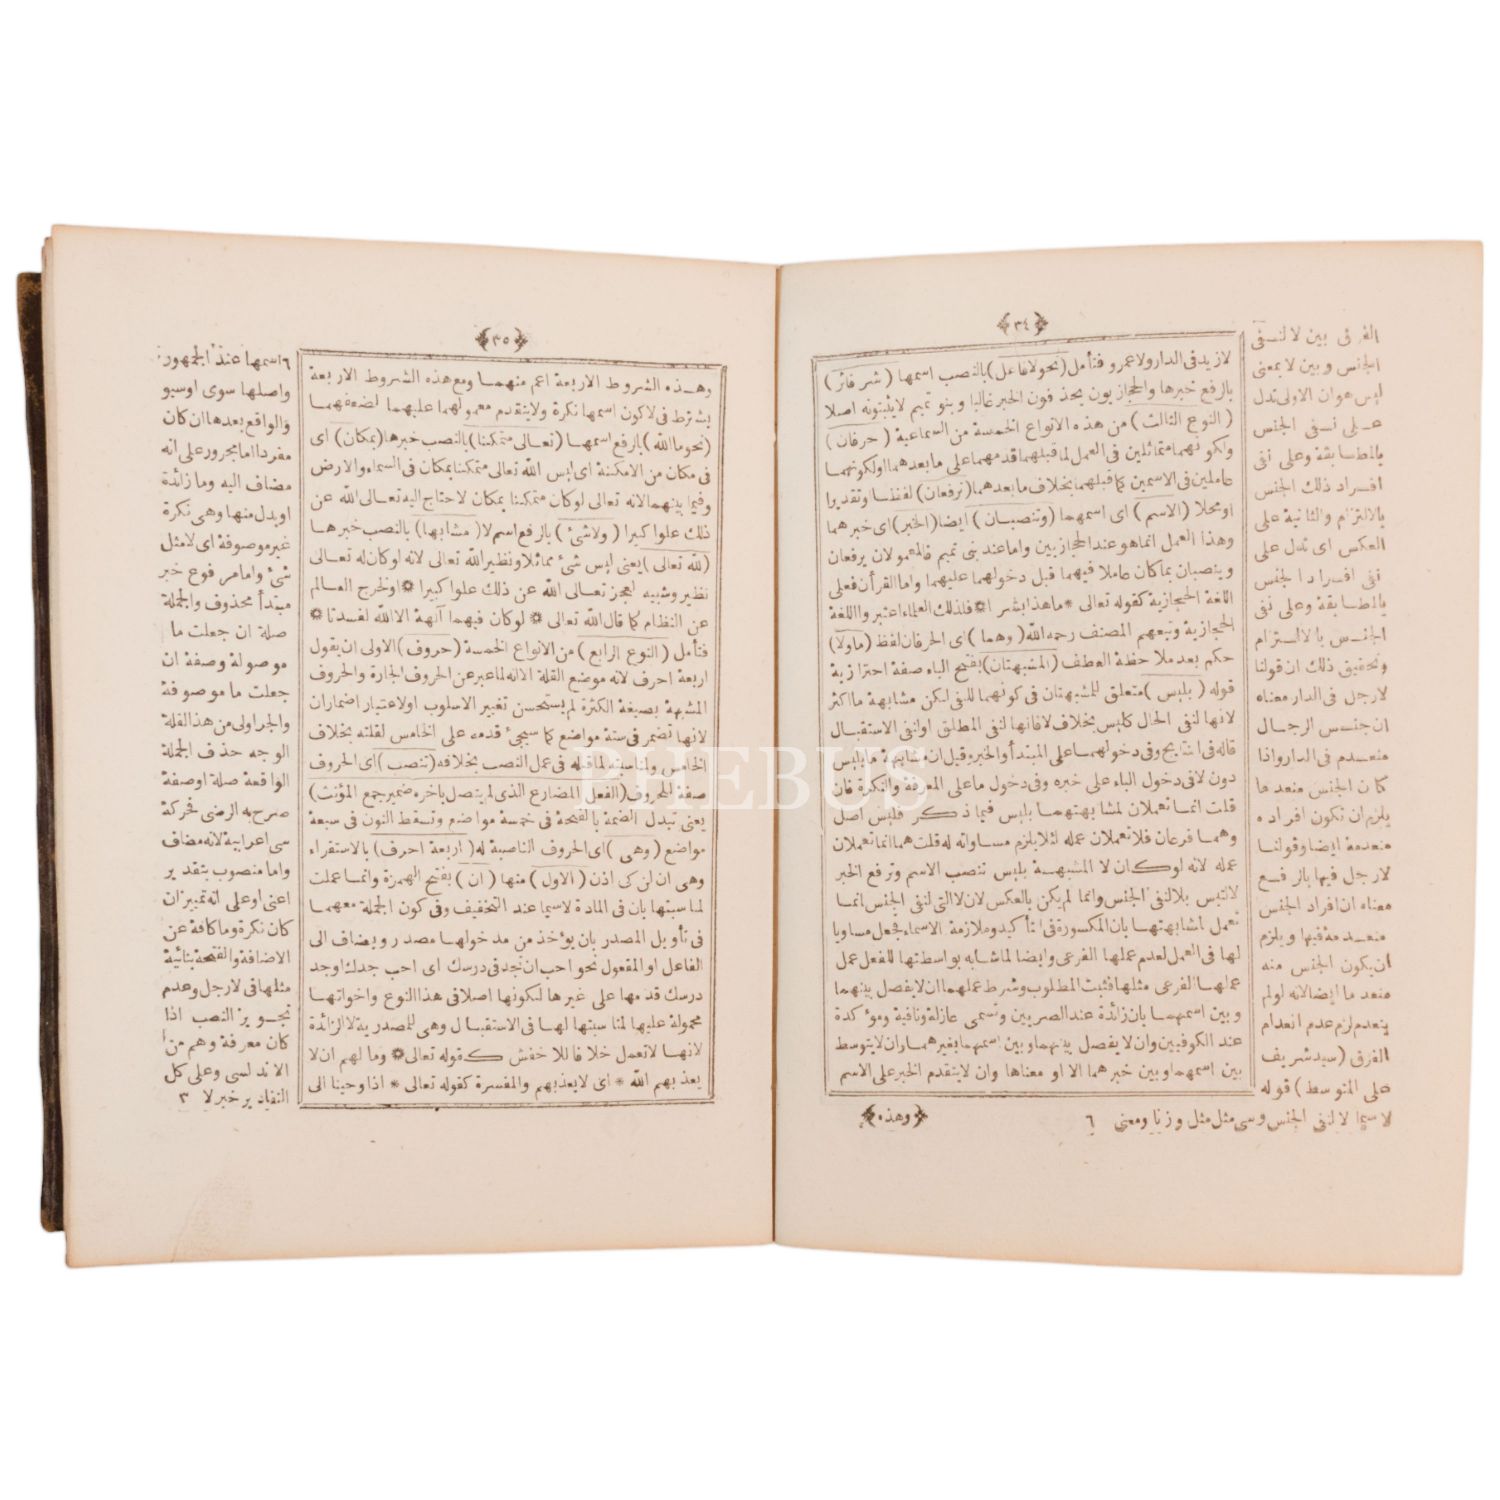 ﴿٣٤﴾
لازيد فى الدار ولا عمرو فتأمل (نحو لا فاعل) بالنصب اسمها (شر فائز)
بازفع خبرها والحجازيون يحذفون الخبر غالبا وبنو تميم لايثبتونه اصلا
(النوع الثالث) من هذه الانواع الخمسة من السماعية (حرفان)
ولكونهما متماثلين فى العمل لما قبلهما قدمهما على ما بعدهما اولكونهما
عاملين فى الاسمين كما قبلهما بخلاف مابعدهما (ترفعان) لفظا وتقديرا
اومحلا (الاسم) اى اسمهما (وتنصبان) ايضا (الخبر) اى خبرهما
وهذا العمل انماهو عند الحجازيين واما عند بنى تميم فالمعمولان يرفعان
وينصبان بماكان عاملا فيهما قبل دخولهما عليهما واما القرأن فعلى
اللغة الحجازية كقوله تعالى * ماهذا بشرا * فلذلك العلماء اعتبروا اللغة
الحجازية وتبعهم المصنف رحمه الله (وهما) اى الحرفان لفظ (ماولا)
حكم بعد ملاحظة العطف (المشبهتان) بفتح الباء صفة احترازية
قوله (بليس) متعلق للمشبهتان فى كونهما للنفى لكن مشابهة ما اكثر
لانها لنفى الحال كليس بخلاف لا فانها لنفى المطلق اولنفى الاستقبال
قاله فى النتايج وفى دخولهما على المبتدأ والخبر وقيل ان مشابهة ما بليس
دون لا فى دخول الباء على خبره وفى دخول ما على المعرفة والنكرة فان
قلت انما تعملان لمشابهتهما بليس فيما ذكر فليس اصل
وهما فرعان فلا تعملان عمله لئلا يلزم مساواته له قلت هما انما تعملان
عمله لانه لوكان لا المشبهة بليس تنصب الاسم وترفع الخبر
لالتبس بلا لنفى الجنس وانما لم يكن بالعكس لان لا التى لنفى الجنس انما
تعمل لمشابهتها بان المكسورة فى التأكيد وملازمة الاسماء فجعل مساويا
لها فى العمل لعدم عملها الفرعى وايضا لما شابه بواسطتها للفعل عمل
عملها الفرعى مثلها فثبت المطلوب وشرط عملهما ان لايفصل بينهما
وبين اسمهما بان زائدة عند البصريين وتسمى عازلة ونافية ومؤكدة
عند الكوفيين وان لايفصل بينهما وبين اسمهما بغيرهما وان لايتوسط
بين اسمهما وبين خبرهما الا او معناها وان لايتقدم الخبر على الاسم
﴿وهذه﴾
الفرق بين لا لنفى
الجنس وبين لا بمعنى
ليس هوان الاولى تدل
على نفى الجنس
بالمطابقة وعلى نفى
افراد ذلك الجنس
بالالتزام والثانية على
العكس اى تدل على
نفى افراد الجنس
بالمطابقة وعلى نفى
الجنس بالالتزام
وتحقيق ذلك ان قولنا
لارجل فى الدار معناه
ان جنس الرجال
منعدم فى الدار واذا
كان الجنس منعدما
يلزم ان تكون افراده
منعدمة ايضا وقولنا
لارجل فيها بازفع
معناه ان افراد الجنس
منعدمة فيها ويلزم
ان يكون الجنس منه
منعدما ايضا لانه لولم
ينعدم لزم عدم انعدام
الفرق (سيد شريف
على المتوسط) قوله
لاسيما لا لنفى الجنس وسى مثل مثل وزنا ومعنى ٦
﴿٣٥﴾
وهذه الشروط الاربعة اعم منهما ومع هذه الشروط الاربعة
يشترط فى لا كون اسمها نكرة ولايتقدم معمولهما عليهما لضعفهما
(نحو ما الله) بازفع اسمها (تعالى متمكنا) بالنصب خبرها (بمكان) اى
فى مكان من الامكنة اى ليس الله تعالى متمكنا بمكان فى السماء والارض
وفيما بينهما لانه تعالى لوكان متمكنا بمكان لاحتاج اليه تعالى الله عن
ذلك علوا كبيرا (ولاشئ) بازفع اسم لا (مشابها) بالنصب خبرها
(لله تعالى) يعنى ليس شئ مماثلا ونظير الله تعالى لانه لوكان له تعالى
نظير وشبيه لعجز تعالى الله عن ذلك علوا كبيرا * اولخرج العالم
عن النظام كما قال الله تعالى * لوكان فيهما آلهة الا الله لفسدتا *
فتأمل (النوع الرابع) من الانواع الخمسة (حروف) الاولى ان يقول
اربعة احرف لانه موضع القلة الا انه لما عبر عن الحروف الجارة والحروف
المشبهة بصيغة الكثرة لم يستحسن تغيير الاسلوب اولاعتبار اضماران
لانها تضمر فى ستة مواضع كما سيجئ قدمه على الخامس لقلته بخلاف
الخامس ولمناسبته لماقبله فى عمل النصب بخلافه (تنصب) اى الحروف
صفة للحروف (الفعل المضارع الذى لم يتصل بآخره ضمير جمع المؤنث)
يعنى تبدل الضمة بالفتحة فى خمسة مواضع وتسقط النون فى سبعة
مواضع (وهى) اى الحروف الناصبة له (اربعة احرف) بالاستقراء
وهى ان لن كى اذن (الاول) منها (ان) بفتح الهمزة وانما عملت
لمناسبتها بان فى المادة لاسيما عند التخفيف وفى كون الجملة معهما
فى تأويل المصدر بان يؤخذ من مدخولها مصدر ويضاف الى
الفاعل او المفعول نحو احب ان تجد فى درسك اى احب جدك اوجد
درسك قدمها على غيرها لكونها اصلا فى هذا النوع واخواتها
محمولة عليها لمناسبتها لها فى الاستقبال وهى للمصدرية لا الزائدة
لانها لاتعمل خلافا للاخفش كقوله تعالى * ومالهم ان لا
يعذبهم الله * اى لايعذبهم والمفسرة كقوله تعالى * اذ اوحينا الى
٦ اسمها عند الجمهور
واصلها سوى اوسيو
والواقع بعدها ان كان
مفردا اما مجرور على انه
مضاف اليه وما زائدة
اوبدل منها وهى نكرة
غير موصوفة اى لامثل
شئ واما مرفوع خبر
مبتدأ محذوف والجملة
صلة ان جعلت ما
موصولة وصفة ان
جعلت ما موصوفة
والجر اولى من هذا لقلة
الوجه حذف الجملة
الواقعة صلة اوصفة
صرح به الرضى فحركة
سى اعرابية لانه مضاف
واما منصوب بتقدير
اعنى اوعلى انه تمييز ان
كان نكرة وما كافة عن
الاضافة والفتحة بنائية
مثلها فى لارجل وعدم
تجويز النصب اذا
كان معرفة وهم من
الاندلسى وعلى كل
التقادير خبر لا ٣
PHEBUS